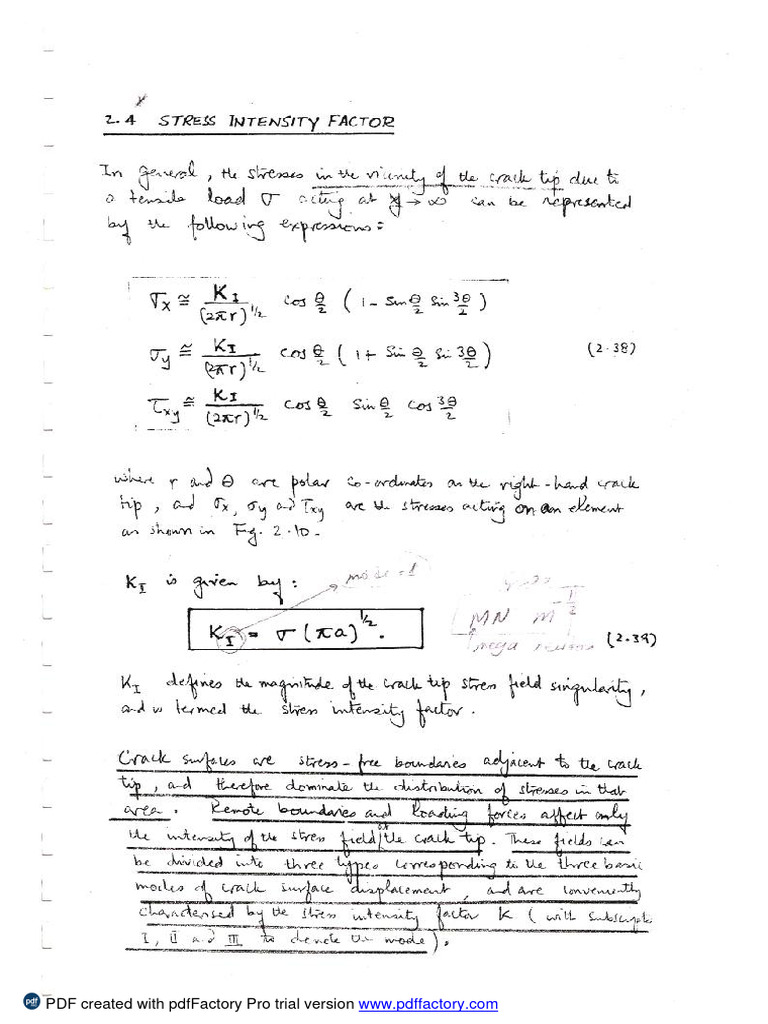 2.4 STRESS INTENSITY FACTOR
In general, the stresses in the vicinity of the crack tip due to
a tensile load σ acting at y → ∞ can be represented
by the following expressions:
σx ≅ KI/(2πr)^1/2 cos θ/2 (1 - sin θ/2 sin 3θ/2)
σy ≅ KI/(2πr)^1/2 cos θ/2 (1 + sin θ/2 sin 3θ/2) (2.38)
τxy ≅ KI/(2πr)^1/2 cos θ/2 sin θ/2 cos 3θ/2
where r and θ are polar co-ordinates on the right-hand crack
tip, and σx, σy and τxy are the stresses acting on an element
as shown in Fig. 2.10.
KI is given by: mode = 1
KI = σ(πa)^1/2.
MN m
mega
(2.39)
KI defines the magnitude of the crack tip stress field singularity,
and is termed the stress intensity factor.
Crack surfaces are stress-free boundaries adjacent to the crack
tip, and therefore dominate the distribution of stresses in that
area. Remote boundaries and loading forces affect only
the intensity of the stress field at the crack tip. These fields can
be divided into three types corresponding to the three basic
modes of crack surface displacement, and are conveniently
characterised by the stress intensity factor K (with subscripts
I, II and III to denote the mode).
pdf PDF created with pdfFactory Pro trial version www.pdffactory.com